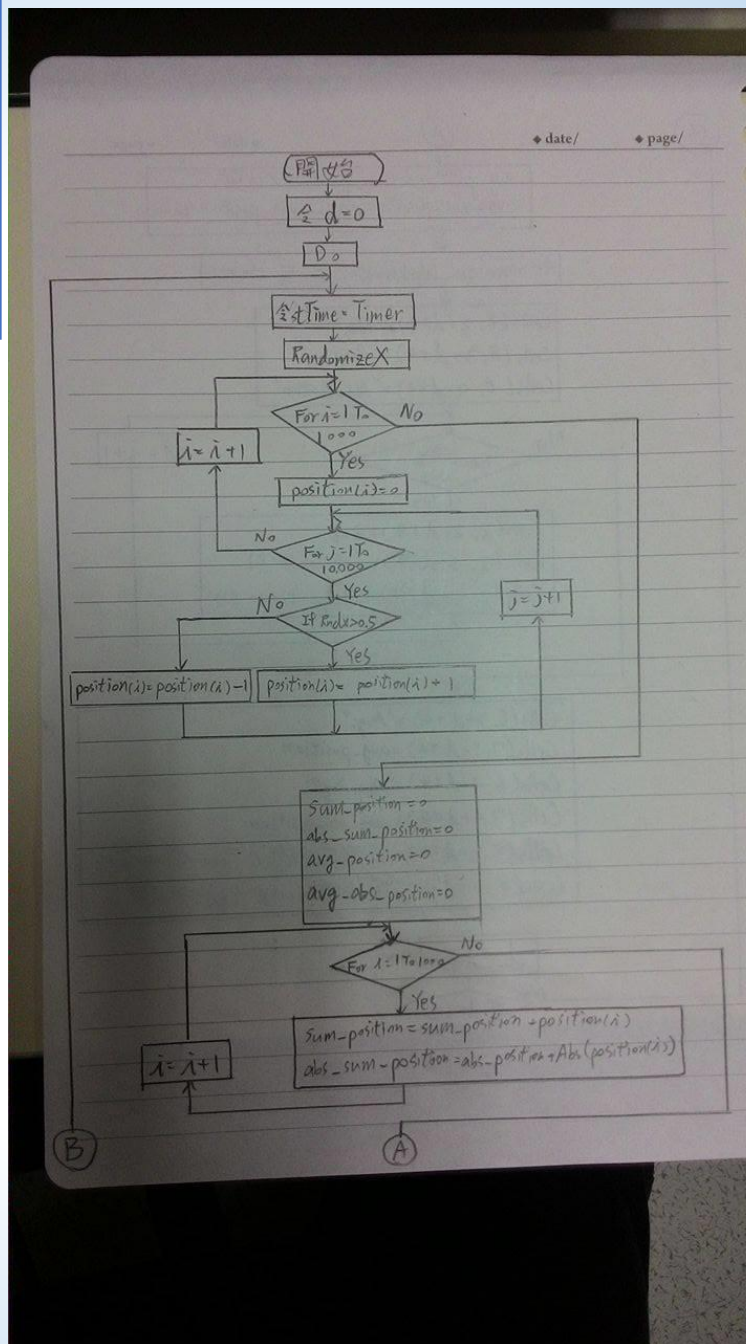 ◆ date/ ◆ page/
開始
令 d=0
Do
令stTime=Timer
RandomizeX
For i=1 To
1000
No
i=i+1
Yes
position(i)=0
No
For j=1 To
10,000
Yes
j=j+1
No
If Rndx>0.5
Yes
position(i)=position(i)-1
position(i)= position(i)+1
sum_position=0
abs_sum_position=0
avg_position=0
avg_abs_position=0
No
For i=1 To 1000
Yes
sum_position=sum_position+position(i)
abs_sum_position=abs_position+Abs(position(i))
i=i+1
B
A